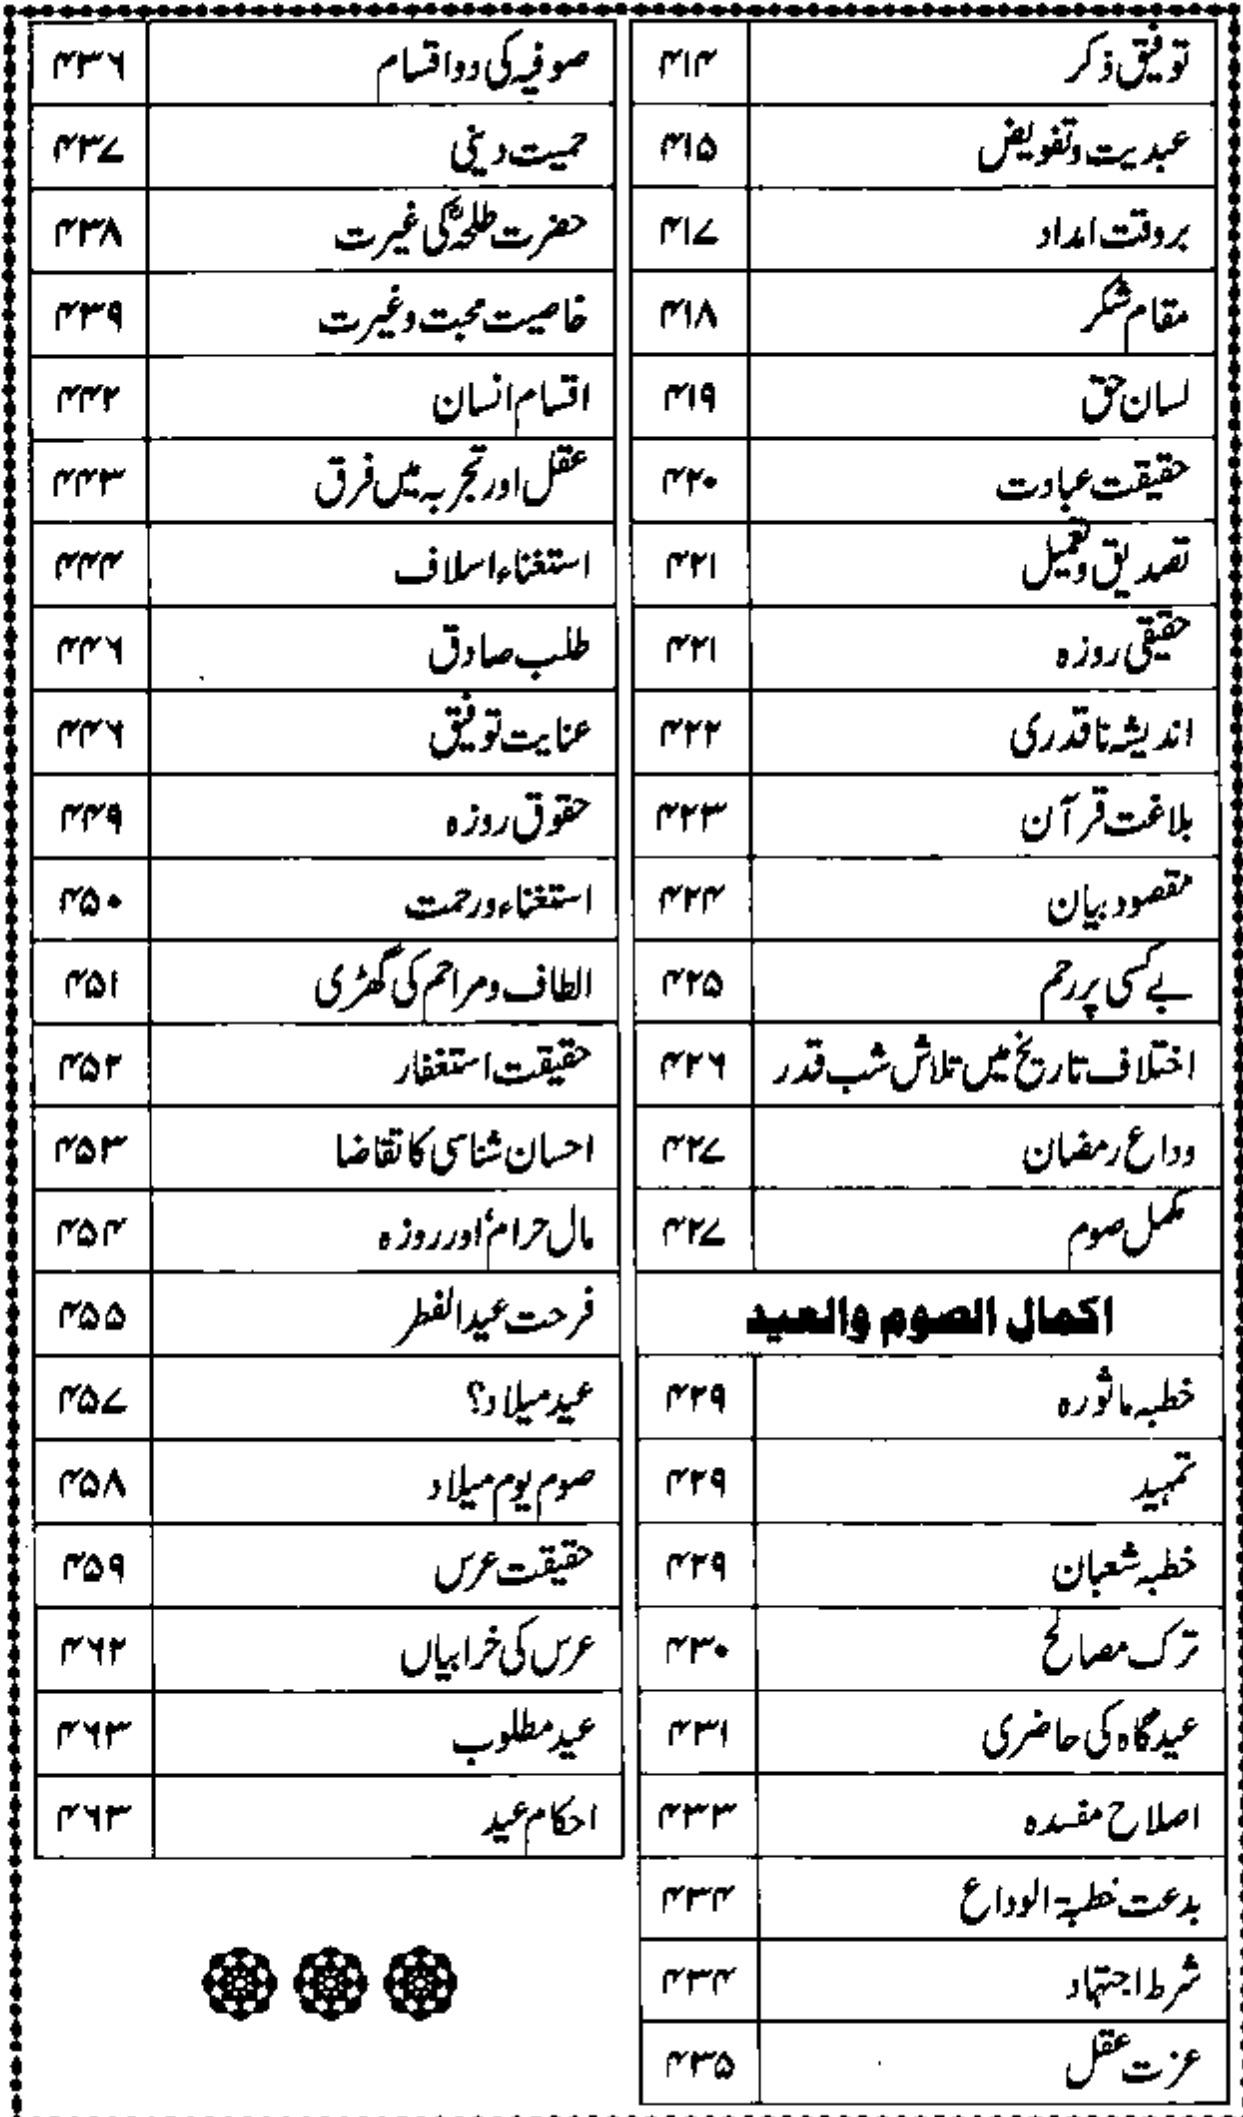 توفیق ذکر ۴۱۴
عبدیت وتفویض ۴۱۵
بروقت امداد ۴۱۷
مقام شکر ۴۱۸
لسان حق ۴۱۹
حقیقت عبادت ۴۲۰
تصدیق وتعمیل ۴۲۱
حقیقی روزہ ۴۲۱
اندیشہ ناقدری ۴۲۲
بلاغت قرآن ۴۲۳
مقصود بیان ۴۲۴
بے کسی پر رحم ۴۲۵
اختلاف تاریخ میں تلاش شب قدر ۴۲۶
وداع رمضان ۴۲۷
مکمل صوم ۴۲۷
اکمال الصوم والعید
خطبہ ماثورہ ۴۲۹
تمہید ۴۲۹
خطبہ شعبان ۴۲۹
ترک مصالح ۴۳۰
عیدگاہ کی حاضری ۴۳۱
اصلاح مفسدہ ۴۳۳
بدعت خطبۃ الوداع ۴۳۴
شرط اجتہاد ۴۳۴
عزت عقل ۴۳۵
صوفیہ کی دو اقسام ۴۳۶
حمیت دینی ۴۳۷
حضرت طلحہؓ کی غیرت ۴۳۸
خاصیت محبت وغیرت ۴۳۹
اقسام انسان ۴۴۲
عقل اور تجربہ میں فرق ۴۴۳
استغناء اسلاف ۴۴۴
طلب صادق ۴۴۶
عنایت توفیق ۴۴۶
حقوق روزہ ۴۴۹
استغناء ورحمت ۴۵۰
الطاف ومراحم کی گھڑی ۴۵۱
حقیقت استغفار ۴۵۲
احسان شناسی کا تقاضا ۴۵۳
مال حرام اور روزہ ۴۵۴
فرحت عیدالفطر ۴۵۵
عید میلاد؟ ۴۵۷
صوم یوم میلاد ۴۵۸
حقیقت عرس ۴۵۹
عرس کی خرابیاں ۴۶۲
عید مطلوب ۴۶۳
احکام عید ۴۶۳